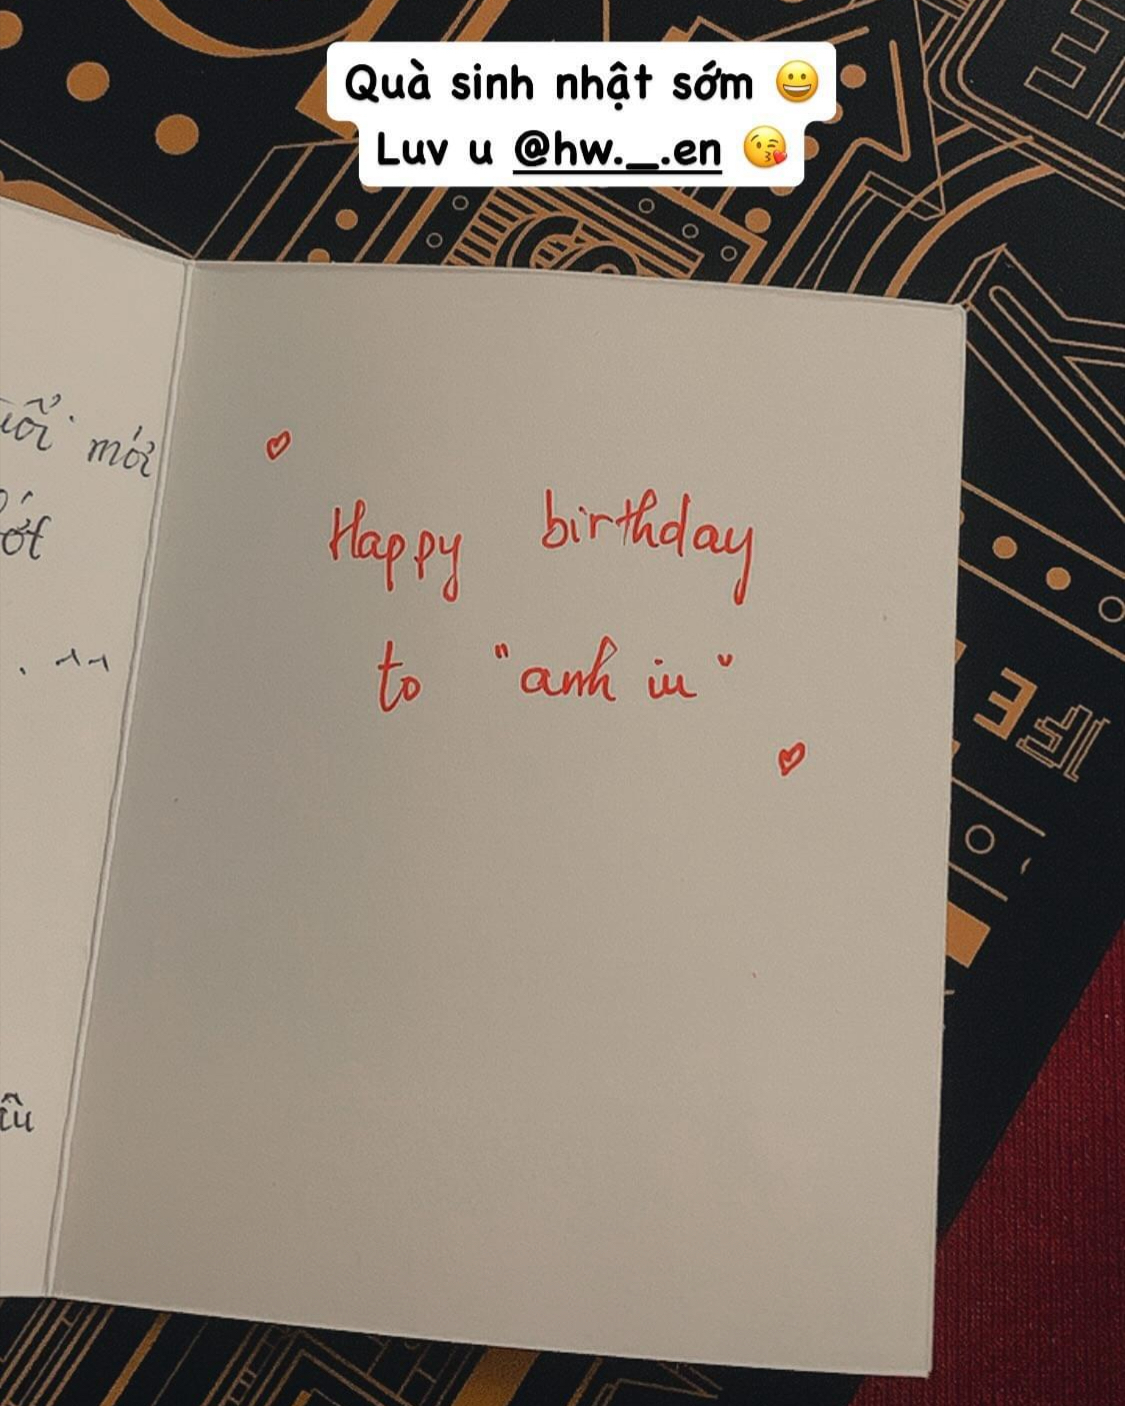 Quà sinh nhật sớm 😀
Luv u @hw._.en 😘
mới
Happy birthday
to "anh iu"